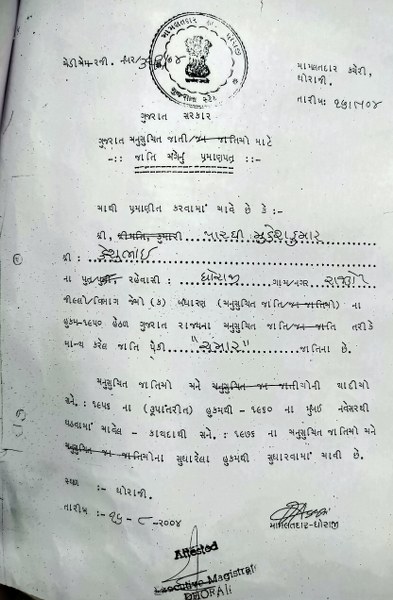 મામલતદાર કચેરી,
ધોરાજી.
ગુજરાત સરકાર
ગુજરાત અનુસુચિત જાતી/જન જાતિઓ માટે
-:: જાતિ અંગેનું પ્રમાણપત્ર ::-
આથી પ્રમાણીત કરવામાં આવે છે કે :-
શ્રી, શ્રીમતિ, કુમારી પારઘી મુકેશકુમાર
શ્રી : કેશુભાઈ
ના પુત્ર/પુત્રી, રહેવાસી : ધોરાજી ગામ/નગર
જીલ્લો/વિભાગ જેઓ (ક) બંધારણ (અનુસુચિત જાતિ/જન જાતિઓ) ના
હુકમ-૧૯૫૦ હેઠળ ગુજરાત રાજ્યના અનુસુચિત જાતિ/જન જાતિ તરીકે
માન્ય કરેલ જાતિ પૈકી "ચમાર" જાતિના છે.
અનુસુચિત જાતિઓ અને અનુસુચિત જન જાતીઓની યાદીઓ
સને : ૧૯૫૬ ના (રૂપાંતરીત) હુકમથી - ૧૯૬૦ ના મુંબઈ
ઘડવામાં આવેલ - કાયદાથી સને : ૧૯૭૬ ના અનુસુચિત જાતિઓ અને
અનુસુચિત જન જાતિઓના સુધારેલા હુકમથી સુધારવામાં આવી છે.
સ્થળ :- ધોરાજી.
તારીખ :- ૧૬-૮-૨૦૦૪
મામલતદાર-ધોરાજી
Attested
Executive Magistrate
DHORAJI